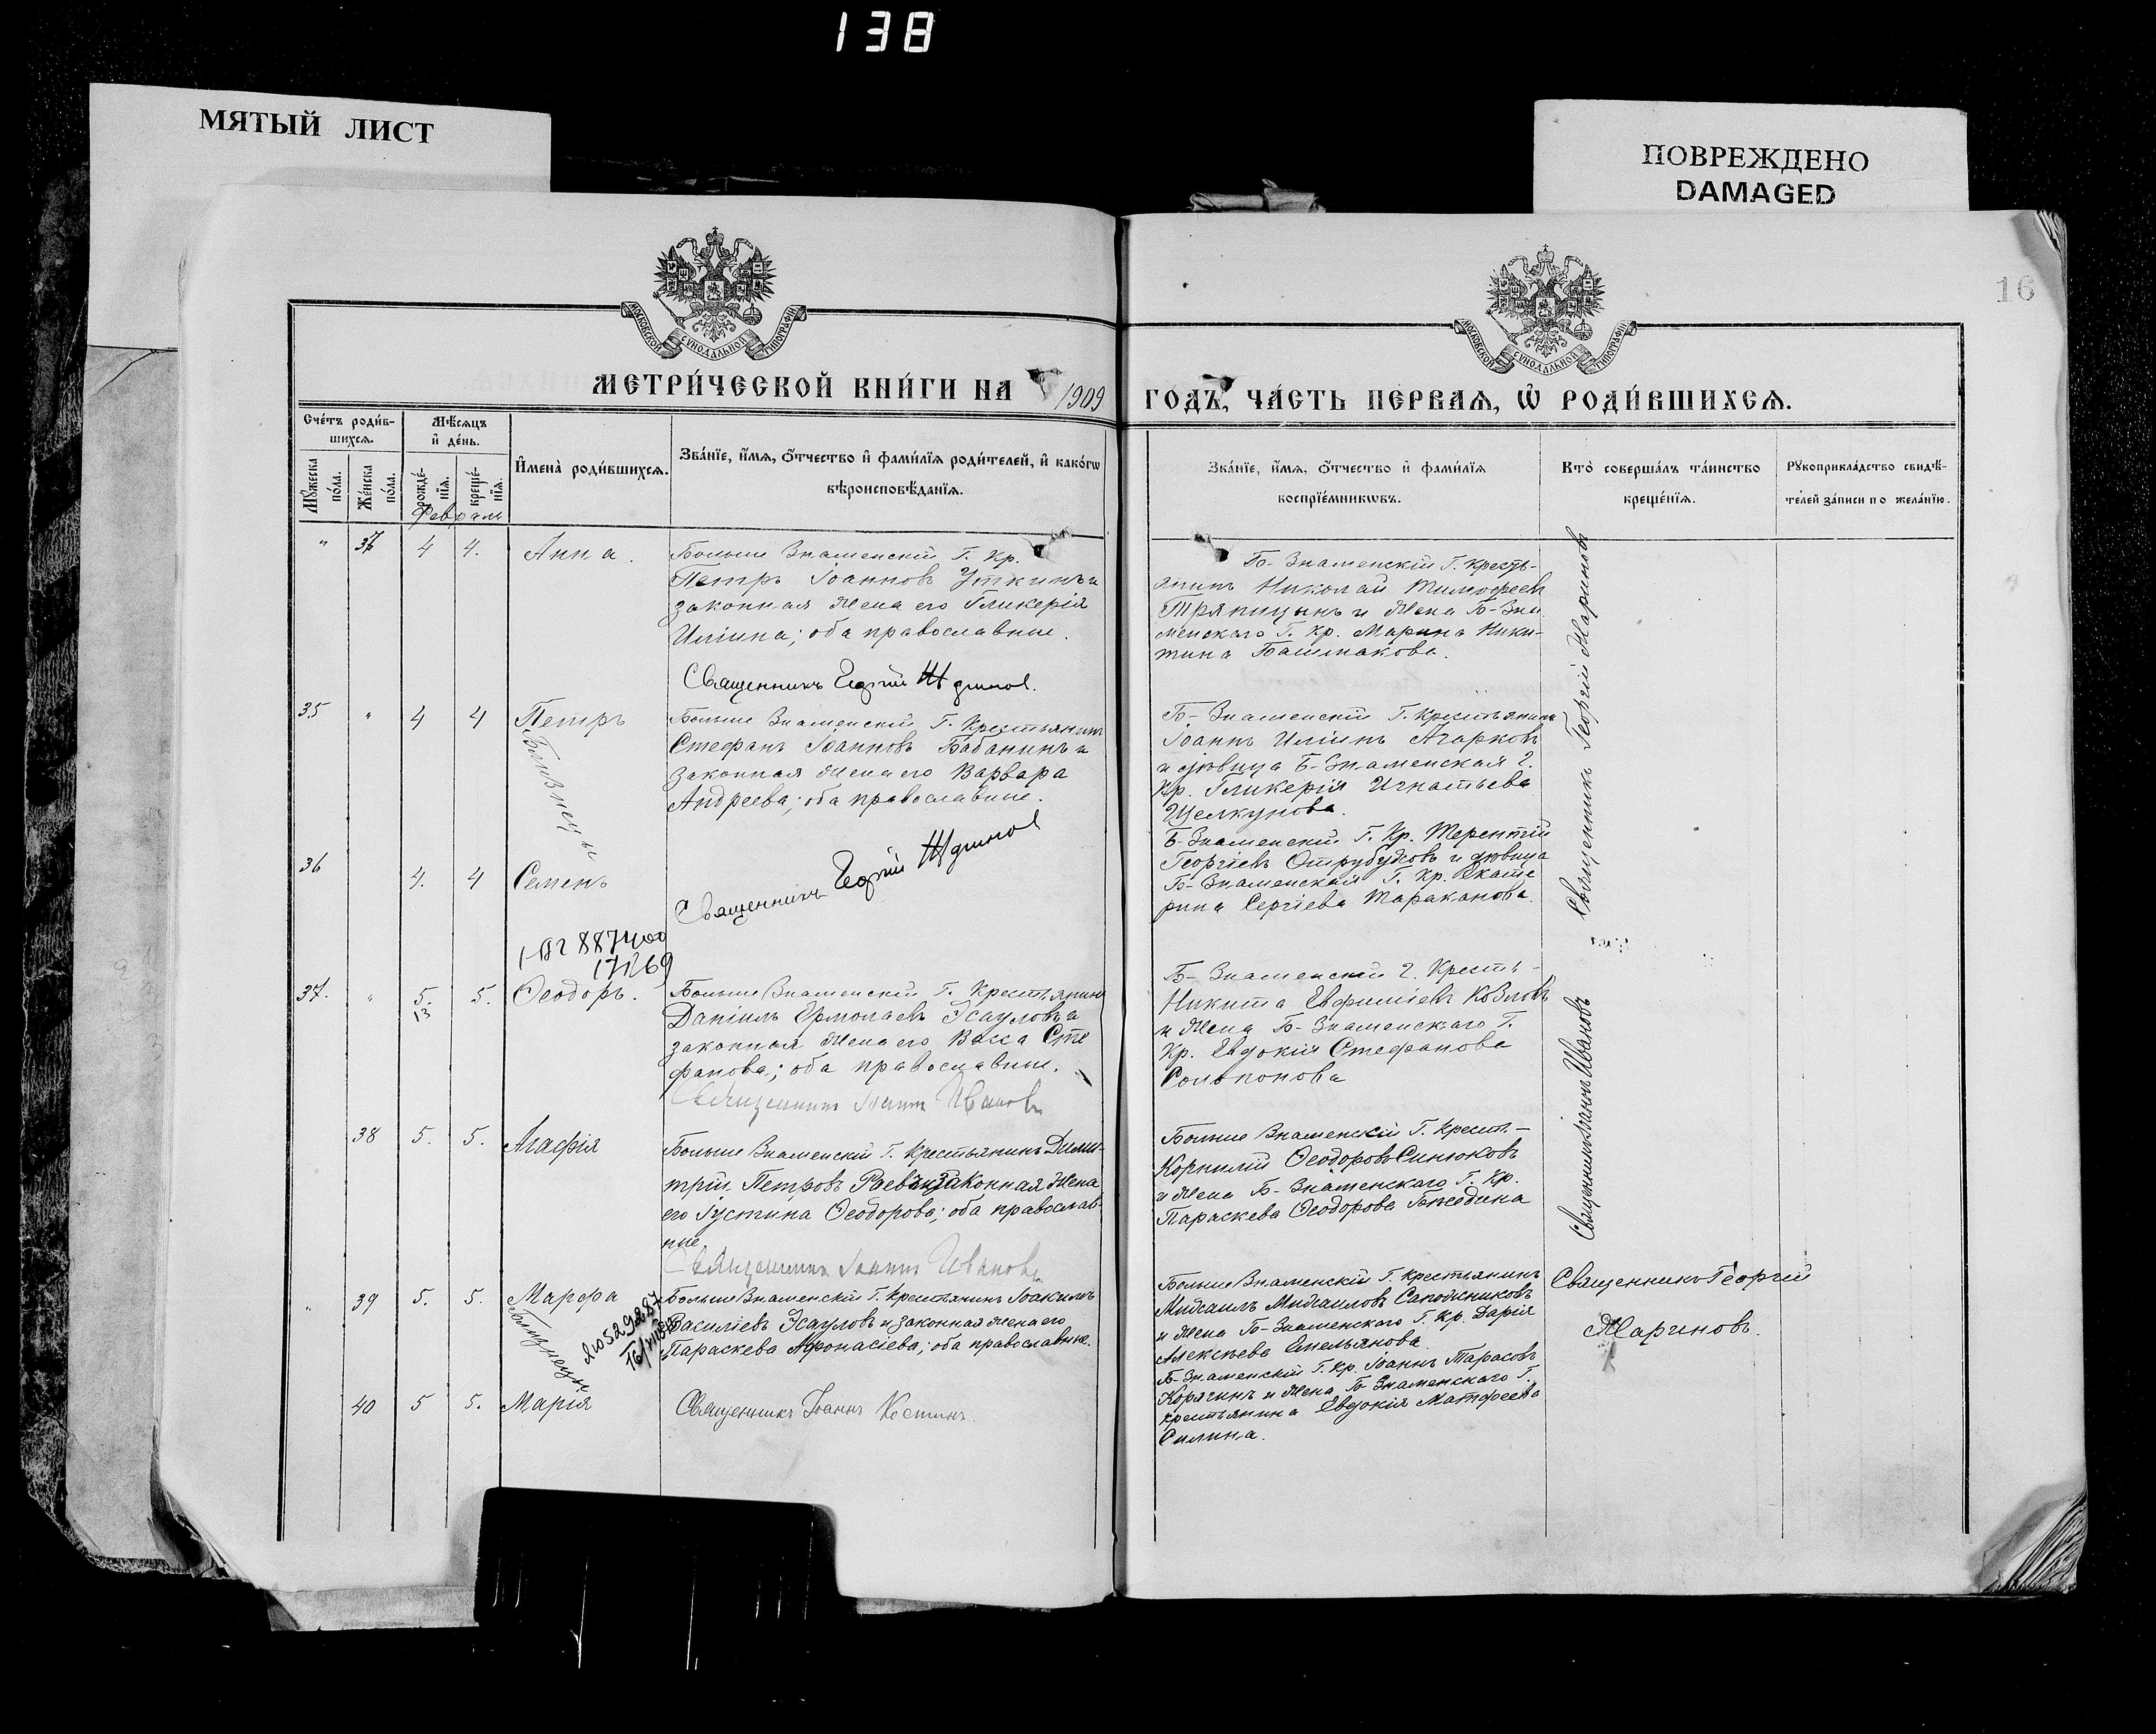 138
МЯТЫЙ ЛИСТ
ПОВРЕЖДЕНО
DAMAGED
16
МОСКОВСКОЙ СУНОДАЛЬНОЙ ТИПОГРАФІИ
МОСКОВСКОЙ СУНОДАЛЬНОЙ ТИПОГРАФІИ
МЕТРИ́ЧЕСКОЙ КНИ́ГИ НА 1909
ГОДЪ, ЧА́СТЬ ПЕРВАѦ, Ѡ РОДИ́ВШИХСѦ.
Сче́тъ роди́в-
шихсѧ.
Мꙋжеска
по́ла.
Же́нска
по́ла.
Мѣ́сѧцъ
и҆ де́нь.
рожде́-
нїѧ.
креще́-
нїѧ.
И҆мена̀ роди́вшихсѧ.
Зва́нїе, и҆́мѧ, ѻ҆́тчество и҆ фами́лїѧ роди́телей, и҆ како́гѡ
вѣроисповѣ́данїѧ.
Зва́нїе, и҆́мѧ, ѻ҆́тчество и҆ фами́лїѧ
воспрїе́мникѡвъ.
Кто̀ соверша́лъ та́инство
креще́нїѧ.
Рꙋкоприкла́дство свидѣ́-
телей за́писи по жела́нїю.
Февраль
" 37 4 4. Анна.
Больше Знаменскій Г. Кр.
Петръ Іоанновъ Уткинъ и
законная жена его Гликерія
Иліина; оба православные.
Священникъ Георгій
Б-Знаменскій Г. Кресть-
янинъ Николай Тимофеевъ
Тряпицынъ и жена Б-Зна
менскаго Г. Кр. Марина Ники-
тина Башмакова.
Священникъ Георгій Мариновъ
35 " 4 4 Петръ
Близнецы
Больше Знаменскій Г. Крестьянинъ
Стефанъ Іоанновъ Бабанинъ и
Законная жена его Варвара
Андреева; оба православные.
Б-Знаменскій Г. Крестьянинъ
Іоаннъ Иліинъ Агарковъ
и дѣвица Б-Знаменская Г.
Кр. Гликерія Игнатьева
Щелкунова.
36 4. 4 Семенъ
Священникъ Георгій
Б-Знаменскій Г. Кр. Терентій
Георгіевъ и дѣвица
Б-Знаменская Г. Кр. Екате
рина Сергіева Тараканова.
37. " 5. 5. Ѳеодоръ.
13
Больше Знаменскій Г. Крестьянинъ
Даніилъ Ермолаевъ Эсауловъ и
законная жена его Васса Сте
фанова; оба православные.
Священникъ Іоаннъ Ивановъ
Б-Знаменскій Г. Кресть-
Никита Евфиміевъ Козловъ
и жена Б-Знаменскаго Г.
Кр. Евдокія Стефанова
Священникъ Іоаннъ Ивановъ
38 5. 5. Агафія
Больше Знаменскій Г. Крестьянинъ Дими-
трій Петровъ законная жена
его Іустина Ѳеодорова; оба православ-
ные.
Священникъ Іоаннъ Ивановъ
Больше Знаменскій Г. Крест.-
Корнилій Ѳеодоровъ Синюковъ
и жена Б-Знаменскаго Г. Кр.
Параскева Ѳеодорова
" 39 5. 5. Марфа
Близнецы
Больше Знаменскій Г. Крестьянинъ Іоакимъ
Василіевъ Эсауловъ и законная жена его
Параскева Афонасіева; оба православные.
Больше Знаменскій Г. Крестьянинъ
Михаилъ Михаиловъ Сапожниковъ
и жена Б-Знаменскаго Г. Кр. Дарія
Алексѣева Емельянова.
Священникъ Георгій
Мариновъ.
40 5 5. Марія
Священникъ Іоаннъ Костинъ.
Б-Знаменскій Г. Кр. Іоаннъ Тарасовъ
Корягинъ и жена Б-Знаменскаго Г.
крестьянина Евдокія Матфеева
Силина.